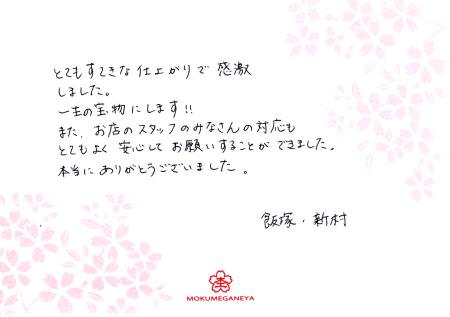 とてもすてきな仕上がりで感激
しました。
一生の宝物にします!!
また、お店のスタッフのみなさんの対応も
とてもよく安心してお願いすることができました。
本当にありがとうございました。
飯塚・新村
MOKUMEGANEYA